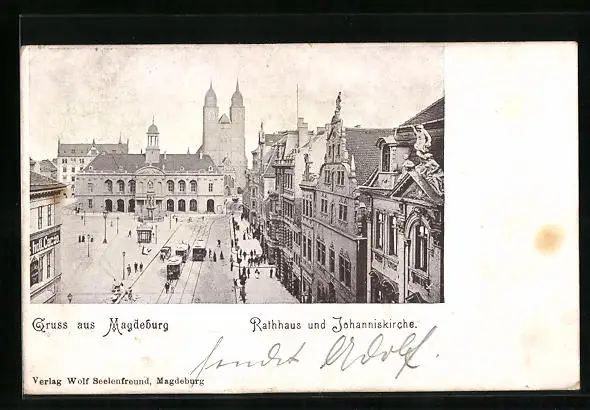 Gruss aus Magdeburg
Rathhaus und Johanniskirche.
sendet Adolf.
Verlag Wolf Seelenfreund, Magdeburg